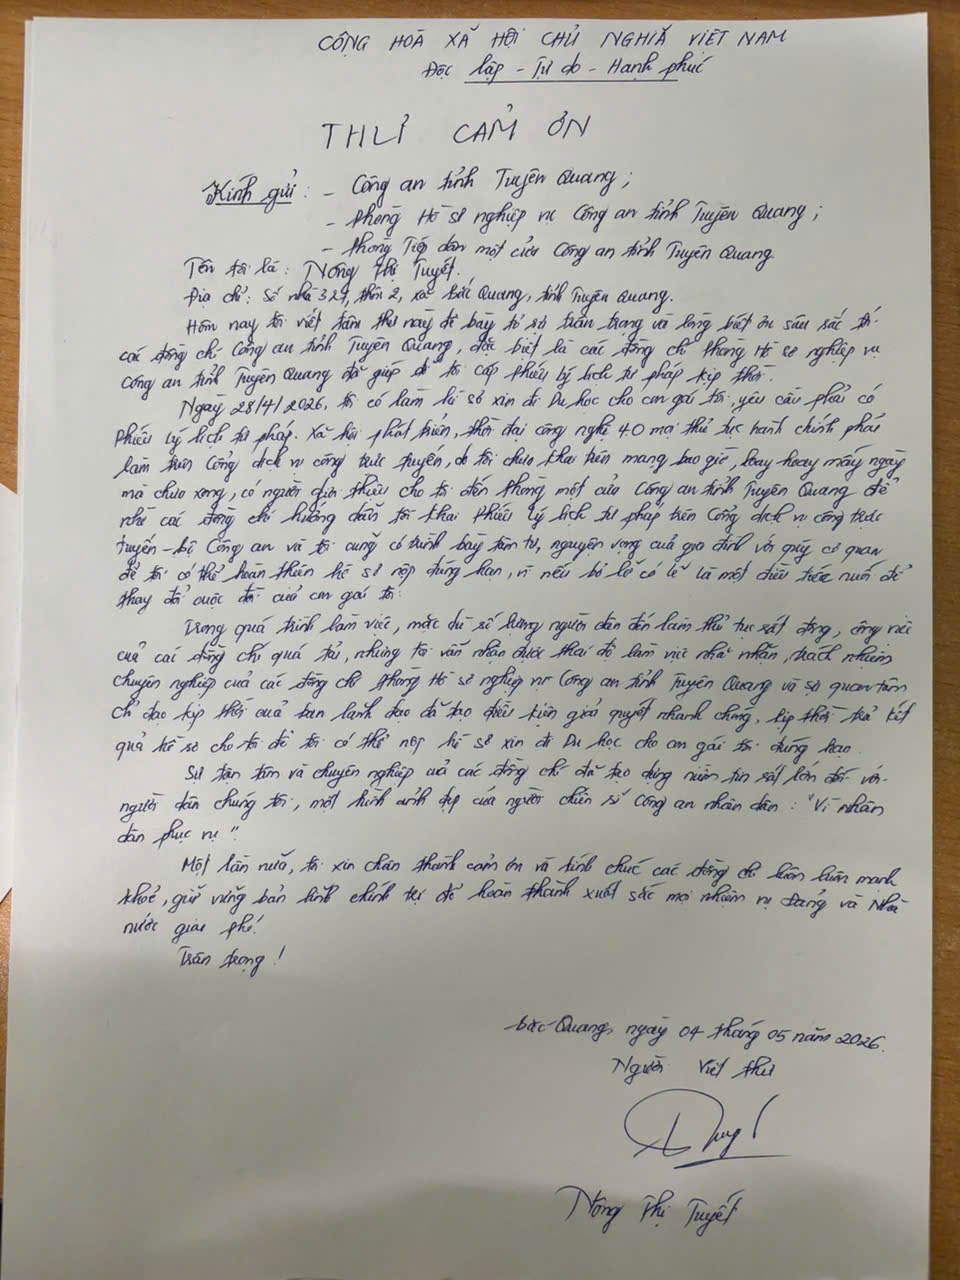 CỘNG HOÀ XÃ HỘI CHỦ NGHĨA VIỆT NAM
Độc lập - Tự do - Hạnh phúc
THƯ CẢM ƠN
Kính gửi: - Công an tỉnh Tuyên Quang;
- Phòng Hồ sơ nghiệp vụ Công an tỉnh Tuyên Quang;
- Phòng Tiếp dân một cửa Công an tỉnh Tuyên Quang.
Tên tôi là: Nông Thị Tuyết.
Địa chỉ: Số nhà 327, thôn 2, xã Bắc Quang, tỉnh Tuyên Quang.
Hôm nay tôi viết tâm thư này để bày tỏ sự trân trọng và lòng biết ơn sâu sắc tới
các đồng chí Công an tỉnh Tuyên Quang, đặc biệt là các đồng chí Phòng Hồ sơ nghiệp vụ
Công an tỉnh Tuyên Quang đã giúp đỡ tôi cấp Phiếu lý lịch tư pháp kịp thời.
Ngày 28/4/2026, tôi có làm hồ sơ xin đi Du học cho con gái tôi, yêu cầu phải có
Phiếu lý lịch tư pháp. Xã hội phát triển, thời đại công nghệ 4.0 mọi thủ tục hành chính phải
làm trên Cổng dịch vụ công trực tuyến, do tôi chưa khai trên mạng bao giờ, loay hoay mấy ngày
mà chưa xong, có người giới thiệu cho tôi đến Phòng một cửa Công an tỉnh Tuyên Quang để
nhờ các đồng chí hướng dẫn tôi khai Phiếu lý lịch tư pháp trên Cổng dịch vụ công trực
tuyến - bộ Công an và tôi cũng có trình bày tâm tư, nguyện vọng của gia đình với quý cơ quan
để tôi có thể hoàn thiện hồ sơ nộp đúng hạn, vì nếu bỏ lỡ có lẽ là một điều tiếc nuối để
thay đổi cuộc đời của con gái tôi.
Trong quá trình làm việc, mặc dù số lượng người dân đến làm thủ tục rất đông, công việc
của các đồng chí quá tải, nhưng tôi vẫn nhận được thái độ làm việc nhã nhặn, trách nhiệm
chuyên nghiệp của các đồng chí Phòng Hồ sơ nghiệp vụ Công an tỉnh Tuyên Quang và sự quan tâm
chỉ đạo kịp thời của ban lãnh đạo đã tạo điều kiện giải quyết nhanh chóng, kịp thời trả kết
quả hồ sơ cho tôi để tôi có thể nộp hồ sơ xin đi Du học cho con gái tôi đúng hạn.
Sự tận tâm và chuyên nghiệp của các đồng chí đã tạo dựng niềm tin rất lớn đối với
người dân chúng tôi, một hình ảnh đẹp của người chiến sĩ Công an nhân dân: "Vì nhân
dân phục vụ".
Một lần nữa, tôi xin chân thành cảm ơn và kính chúc các đồng chí luôn luôn mạnh
khoẻ, giữ vững bản lĩnh chính trị để hoàn thành xuất sắc mọi nhiệm vụ Đảng và Nhà
nước giao phó.
Trân trọng!
Bắc Quang, ngày 04 tháng 05 năm 2026.
Người viết thư
Nông Thị Tuyết